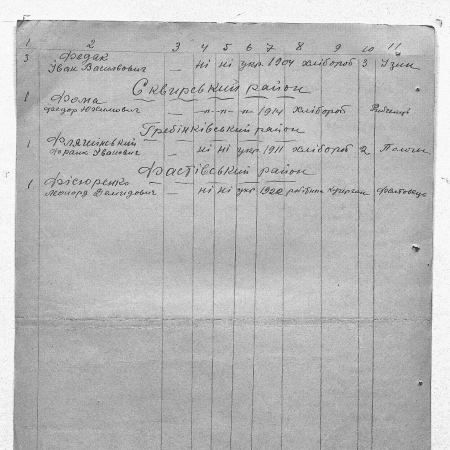 1 2 3 4 5 6 7 8 9 10 11
3 Федак
Іван Васильович — ні ні укр. 1904 хлібороб 3 Узин
Сквирський район
1 Фома
Федор Юхимович — -"- -"- -"- 1914 хлібороб
Гребінківський район
1
Франк Іванович — ні ні укр 1911 хлібороб 2 Пологи
Фастівський район
1
— ні ні укр 1922 Фастовець